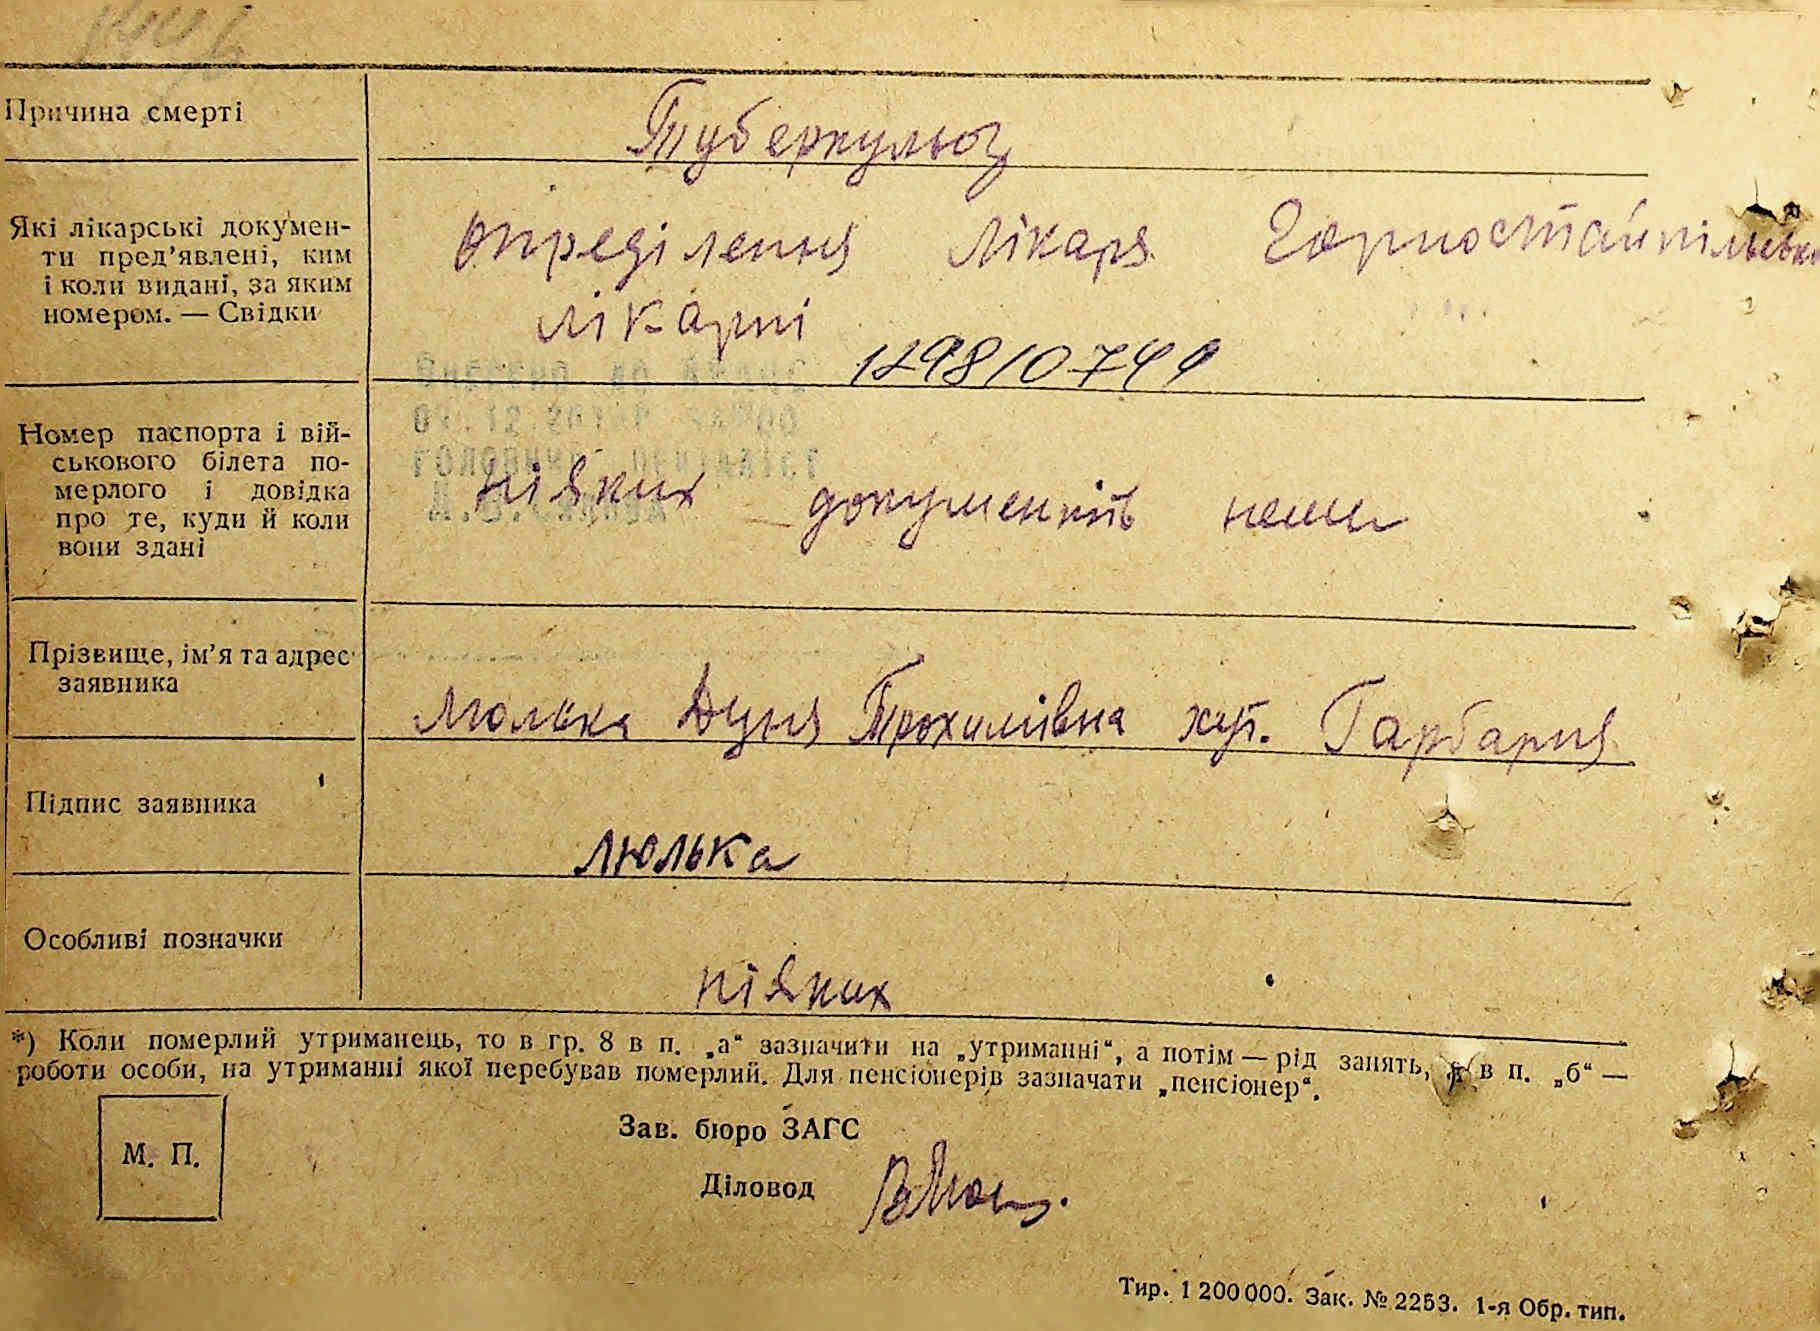 Причина смерті
Туберкульоз
Які лікарські докумен-
ти пред’явлені, ким
і коли видані, за яким
номером. — Свідки
опреділення лікаря Горностайпільської
лікарні
Номер паспорта і вій-
ськового білета по-
мерлого і довідка
про те, куди й коли
вони здані
ніяких документів нема
Прізвище, ім’я та адрес
заявника
Люлька Дуня Трохимівна хут. Гарбарня
Підпис заявника
Люлька
Особливі позначки
ніяких
*) Коли померлий утриманець, то в гр. 8 в п. „а“ зазначити на „утриманні“, а потім — рід занять, а в п. „б“ —
роботи особи, на утриманні якої перебував померлий. Для пенсіонерів зазначати „пенсіонер“.
М. П.
Зав. бюро ЗАГС
Діловод
Тир. 1 200 000. Зак. № 2253. 1-я Обр. тип.